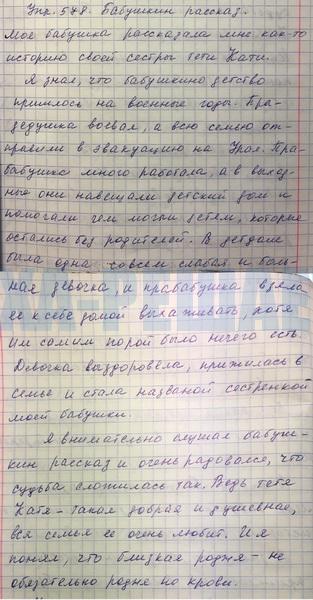 Упр. 578. Бабушкин рассказ.
Моя бабушка рассказала мне как-то
историю своей сестры тёти Кати.
Я знал, что бабушкино детство
пришлось на военные годы. Пра-
дедушка воевал, а всю семью от-
правили в эвакуацию на Урал. Пра-
бабушка много работала, а в выход-
ные они навещали детский дом и
помогали чем могли детям, которые
остались без родителей. В детдоме
была одна совсем слабая и боль-
ная девочка, и прабабушка взяла
её к себе домой выхаживать, хотя
им самим порой было нечего есть.
Девочка выздоровела, прижилась в
семье и стала названой сестрёнкой
моей бабушки.
Я внимательно слушал бабуш-
кин рассказ и очень радовался, что
судьба сложилась так. Ведь тётя
Катя – такая добрая и душевная,
вся семья её очень любит. И я
понял, что близкая родня – не
обязательно родня по крови.